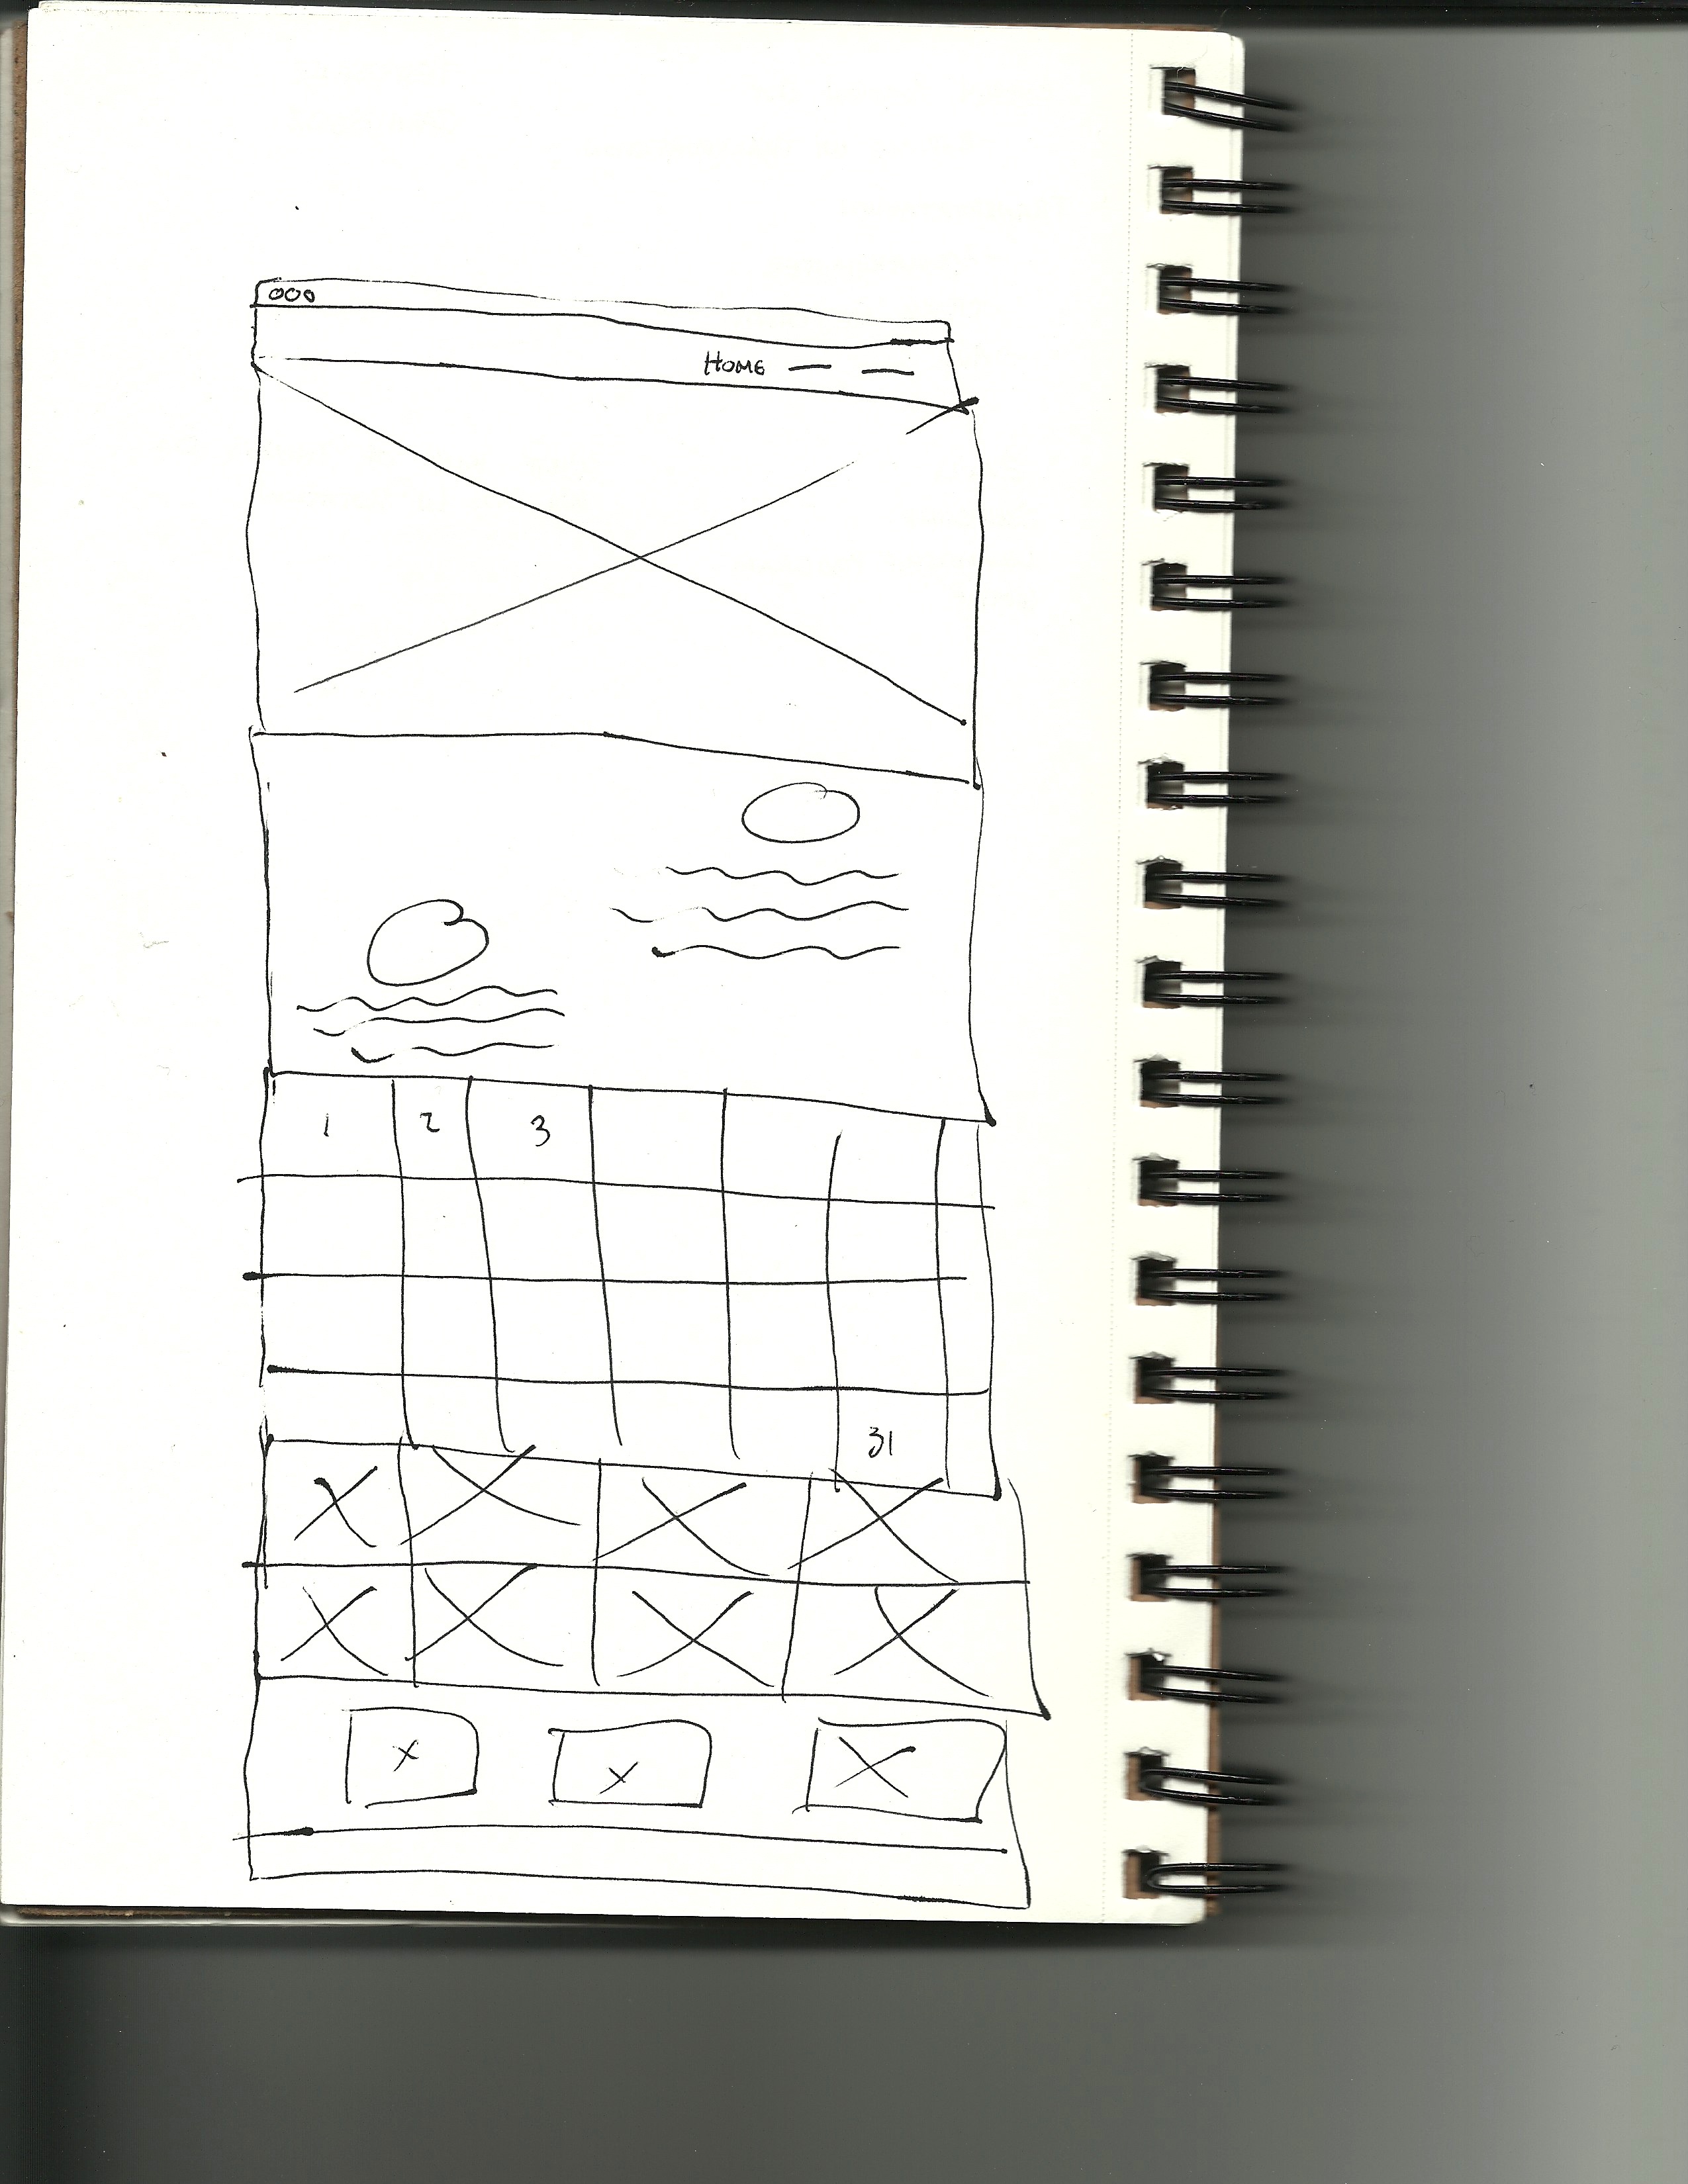 HOME
1 2 3
31